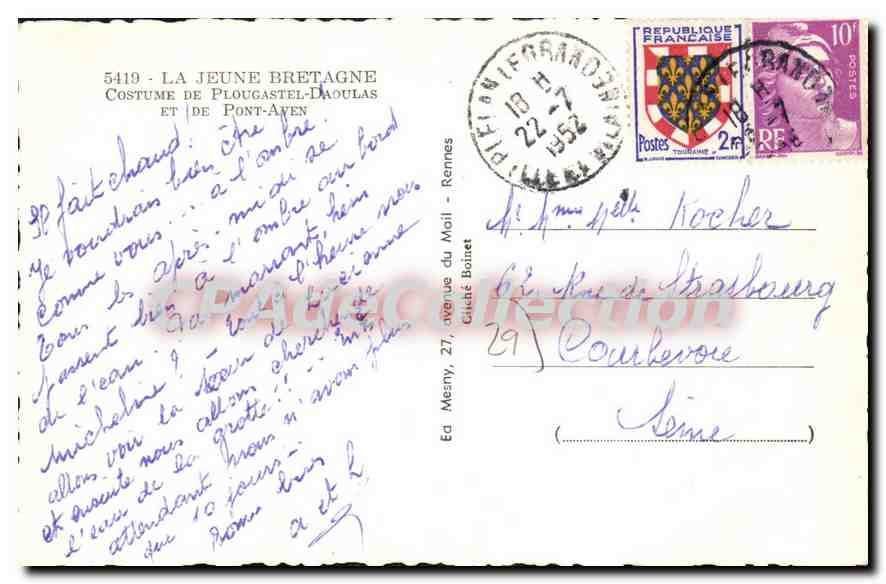 5419 - LA JEUNE BRETAGNE
COSTUME DE PLOUGASTEL-DAOULAS
ET DE PONT-AVEN
Il fait chaud !
Je voudrais bien être
comme vous... à l'ombre !
Tous les après-midi se
passent bien à l'ombre au bord
de l'eau. Ça marrant, hein
Micheline ? - Tout à l'heure nous
allons voir la de Lucienne
et ensuite nous allons chercher de
l'eau de la grotte !! - Mis
attendant nous n'avons plus
que 10 jours -
Bons baisers
a et L
Ed Mesny, 27, avenue du Mail - Rennes
Cliché Boinet
PIPIAN LE GRAND
18 H
22-7
1952
ILLE ET VILAINE
REPUBLIQUE
FRANÇAISE
Postes 2F
TOURAINE
10F
POSTES
RF
Mr Mme Melle Kocher
62 Rue de Strasbourg
29) Courbevoie
(Seine)
CPAdeCollection